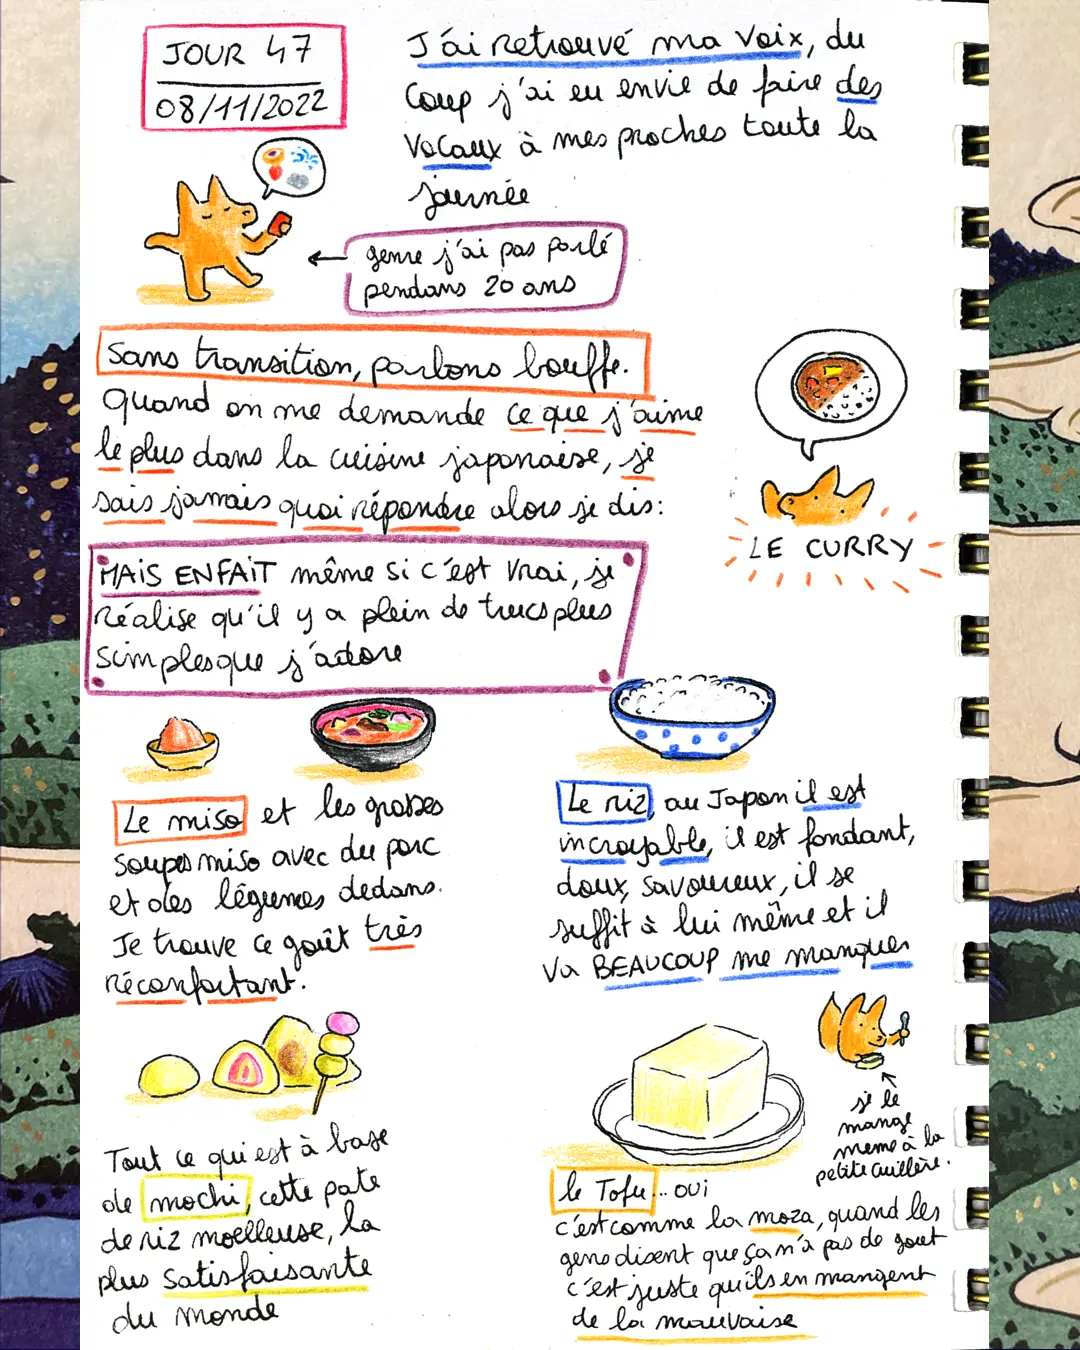 JOUR 47
08/11/2022
J'ai retrouvé ma voix, du
coup j'ai eu envie de faire des
vocaux à mes proches toute la
journée
genre j'ai pas parlé
pendans 20 ans
Sans transition, parlons bouffe.
Quand on me demande ce que j'aime
le plus dans la cuisine japonaise, je
sais jamais quoi répondre alors je dis:
LE CURRY
MAIS ENFAIT même si c'est vrai, je
réalise qu'il y a plein de trucs plus
simples que j'adore
Le miso et les grosses
soupes miso avec du porc
et des légumes dedans.
Je trouve ce goût très
réconfortant.
Le riz, au Japon il est
incroyable, il est fondant,
doux, savoureux, il se
suffit à lui même et il
va BEAUCOUP me manquer
Tout ce qui est à base
de mochi, cette pate
de riz moelleuse, la
plus satisfaisante
du monde
je le
mange
meme à la
petite cuillère.
le Tofu... oui
c'est comme la moza, quand les
gens disent que ça n'a pas de gout
c'est juste qu'ils en mangent
de la mauvaise